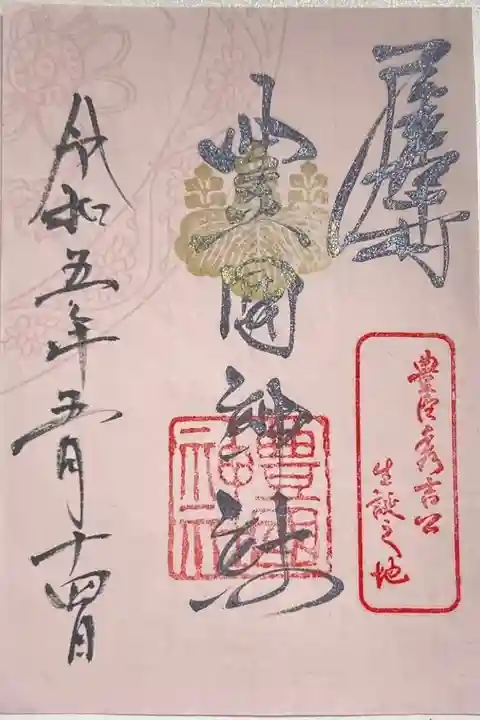 豊臣秀吉公
生誕之地
豊國神社
豊國
神社
令和五年五月十四日